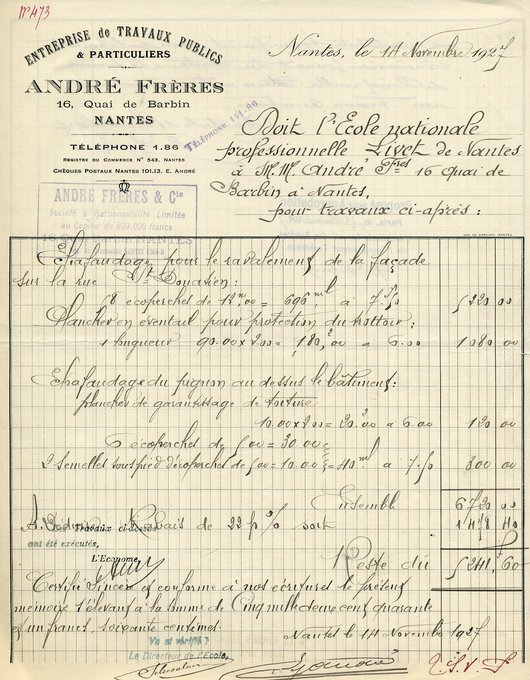 N° 473
ENTREPRISE de TRAVAUX PUBLICS
& PARTICULIERS
ANDRÉ FRÈRES
16, Quai de Barbin
NANTES
TÉLÉPHONE 1.86
REGISTRE DU COMMERCE N° 543. NANTES
CHÈQUES POSTAUX NANTES 101.13. E. ANDRÉ
TÉLÉPHONE 141-86
ANDRÉ FRÈRES & Cie
Société à Responsabilité Limitée
au Capital de 800.000 francs
Nantes, le 14 Novembre 1927
Doit l'Ecole nationale
professionnelle Livet de Nantes
à M.M. André Frères 16 Quai de
Barbin à Nantes,
pour travaux ci-après :
Echafaudage pour le ravalement de la façade
sur la rue St Donatien :
58 écoperches de 12m00 = 696 ml à 7.50 5220 00
Plancher en éventail pour protection du trottoir :
1 longueur 90.00 x 2.00 = 180,2 00 à 6.00 1080 00
Echafaudage du pignon au dessus le bâtiment :
planches de garantissage de toiture
10.00 x 2.00 = 20.00 à 6.00 120 00
6 écoperches de 5.00 = 30.00
2 semelles sous pied d'écoperches de 5.00 = 10.00 = 40 ml à 7.50 300 00
Ensemble 6720 00
A déduire, Rabais de 22 p% soit 1478 40
Les Travaux ci-dessus
ont été exécutés,
L'Econome,
Reste dû 5241,60
Certifié sincère et conforme à nos écritures le présent
mémoire s'élevant à la somme de Cinq mille deux cent quarante
et un francs, soixante centimes.
Nantes le 14 Novembre 1927
Vu et vérifié
Le Directeur de l'Ecole,
T.S.V.P.